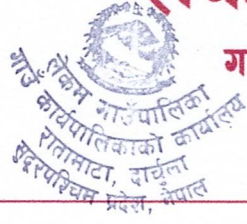 लेकम गाउँपालिका
गाउँ कार्यपालिकाको कार्यालय
रातामाटा, दार्चुला
सुदूरपश्चिम प्रदेश, नेपाल
ग